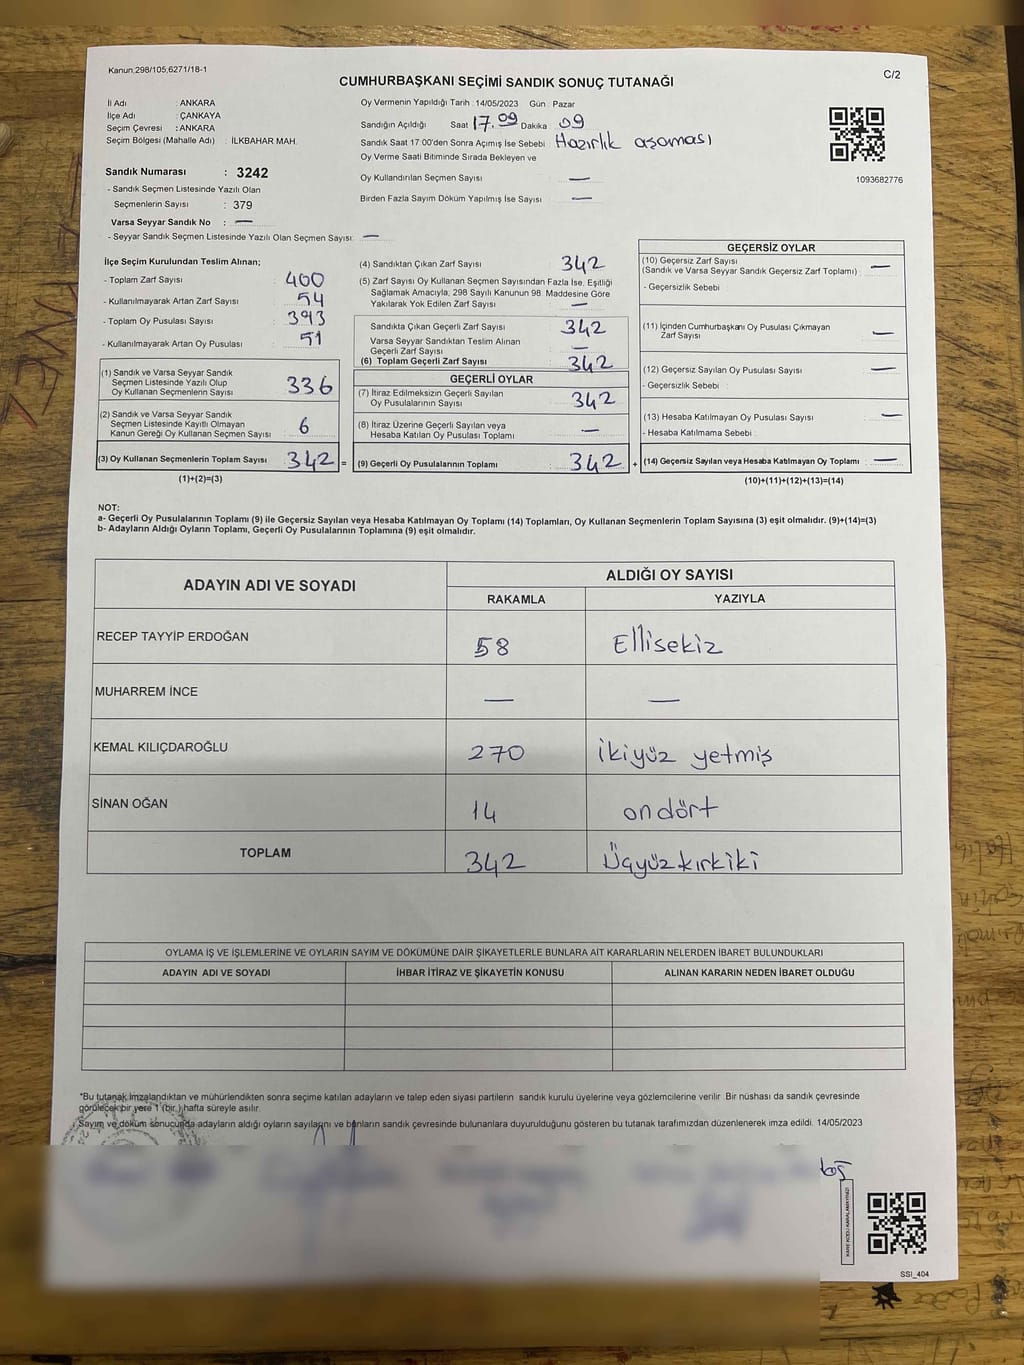 Kanun;298/105,6271/18-1
C/2
CUMHURBAŞKANI SEÇİMİ SANDIK SONUÇ TUTANAĞI
İl Adı : ANKARA
İlçe Adı : ÇANKAYA
Seçim Çevresi : ANKARA
Seçim Bölgesi (Mahalle Adı) : İLKBAHAR MAH.
Sandık Numarası : 3242
- Sandık Seçmen Listesinde Yazılı Olan
Seçmenlerin Sayısı : 379
Varsa Seyyar Sandık No : —
- Seyyar Sandık Seçmen Listesinde Yazılı Olan Seçmen Sayısı: —
Oy Vermenin Yapıldığı Tarih : 14/05/2023 Gün : Pazar
Sandığın Açıldığı Saat 17.09 Dakika 09
Sandık Saat 17:00'den Sonra Açımış İse Sebebi : Hazırlık aşaması
Oy Verme Saati Bitiminde Sırada Bekleyen ve
Oy Kullandırılan Seçmen Sayısı —
Birden Fazla Sayım Döküm Yapılmış İse Sayısı —
1093682776
İlçe Seçim Kurulundan Teslim Alınan;
- Toplam Zarf Sayısı : 400
- Kullanılmayarak Artan Zarf Sayısı : 54
- Toplam Oy Pusulası Sayısı : 393
- Kullanılmayarak Artan Oy Pusulası : 51
(1) Sandık ve Varsa Seyyar Sandık
Seçmen Listesinde Yazılı Olup
Oy Kullanan Seçmenlerin Sayısı 336
(2) Sandık ve Varsa Seyyar Sandık
Seçmen Listesinde Kayıtlı Olmayan
Kanun Gereği Oy Kullanan Seçmen Sayısı 6
(3) Oy Kullanan Seçmenlerin Toplam Sayısı 342 =
(1)+(2)=(3)
(4) Sandıktan Çıkan Zarf Sayısı 342
(5) Zarf Sayısı Oy Kullanan Seçmen Sayısından Fazla İse, Eşitliği
Sağlamak Amacıyla, 298 Sayılı Kanunun 98. Maddesine Göre
Yakılarak Yok Edilen Zarf Sayısı —
Sandıkta Çıkan Geçerli Zarf Sayısı 342
Varsa Seyyar Sandıktan Teslim Alınan
Geçerli Zarf Sayısı —
(6) Toplam Geçerli Zarf Sayısı 342
GEÇERLİ OYLAR
(7) İtiraz Edilmeksizin Geçerli Sayılan
Oy Pusulalarının Sayısı 342
(8) İtiraz Üzerine Geçerli Sayılan veya
Hesaba Katılan Oy Pusulası Toplamı —
(9) Geçerli Oy Pusulalarının Toplamı 342 +
GEÇERSİZ OYLAR
(10) Geçersiz Zarf Sayısı
(Sandık ve Varsa Seyyar Sandık Geçersiz Zarf Toplamı) : —
- Geçersizlik Sebebi :
(11) İçinden Cumhurbaşkanı Oy Pusulası Çıkmayan
Zarf Sayısı —
(12) Geçersiz Sayılan Oy Pusulası Sayısı —
- Geçersizlik Sebebi :
(13) Hesaba Katılmayan Oy Pusulası Sayısı —
- Hesaba Katılmama Sebebi :
(14) Geçersiz Sayılan veya Hesaba Katılmayan Oy Toplamı : —
(10)+(11)+(12)+(13)=(14)
NOT:
a- Geçerli Oy Pusulalarının Toplamı (9) ile Geçersiz Sayılan veya Hesaba Katılmayan Oy Toplamı (14) Toplamları, Oy Kullanan Seçmenlerin Toplam Sayısına (3) eşit olmalıdır. (9)+(14)=(3)
b- Adayların Aldığı Oyların Toplamı, Geçerli Oy Pusulalarının Toplamına (9) eşit olmalıdır.
ADAYIN ADI VE SOYADI
ALDIĞI OY SAYISI
RAKAMLA YAZIYLA
RECEP TAYYİP ERDOĞAN 58 Ellisekiz
MUHARREM İNCE — —
KEMAL KILIÇDAROĞLU 270 ikiyüz yetmiş
SİNAN OĞAN 14 ondört
TOPLAM 342 Üçyüzkırkiki
OYLAMA İŞ VE İŞLEMLERİNE VE OYLARIN SAYIM VE DÖKÜMÜNE DAİR ŞİKAYETLERLE BUNLARA AİT KARARLARIN NELERDEN İBARET BULUNDUKLARI
ADAYIN ADI VE SOYADI İHBAR İTİRAZ VE ŞİKAYETİN KONUSU ALINAN KARARIN NEDEN İBARET OLDUĞU
*Bu tutanak imzalandıktan ve mühürlendikten sonra seçime katılan adayların ve talep eden siyasi partilerin sandık kurulu üyelerine veya gözlemcilerine verilir. Bir nüshası da sandık çevresinde
görülecek bir yere 1 (bir) hafta süreyle asılır.
Sayım ve döküm sonucunda adayların aldığı oyların sayılarını ve bunların sandık çevresinde bulunanlara duyurulduğunu gösteren bu tutanak tarafımızdan düzenlenerek imza edildi. 14/05/2023
SSI_404